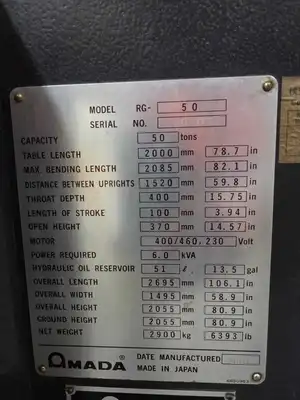 MODEL RG- 50
SERIAL NO.
CAPACITY 50 tons
TABLE LENGTH 2000 mm 78.7 in
MAX. BENDING LENGTH 2085 mm 82.1 in
DISTANCE BETWEEN UPRIGHTS 1520 mm 59.8 in
THROAT DEPTH 400 mm 15.75 in
LENGTH OF STROKE 100 mm 3.94 in
OPEN HEIGHT 370 mm 14.57 in
MOTOR 400/460,230 Volt
POWER REQUIRED 6.0 kVA
HYDRAULIC OIL RESERVOIR 51 ℓ 13.5 gal
OVERALL LENGTH 2695 mm 106.1 in
OVERALL WIDTH 1495 mm 58.9 in
OVERALL HEIGHT 2055 mm 80.9 in
GROUND HEIGHT 2055 mm 80.9 in
NET WEIGHT 2900 kg 6393 lb
AMADA ® DATE MANUFACTURED
MADE IN JAPAN